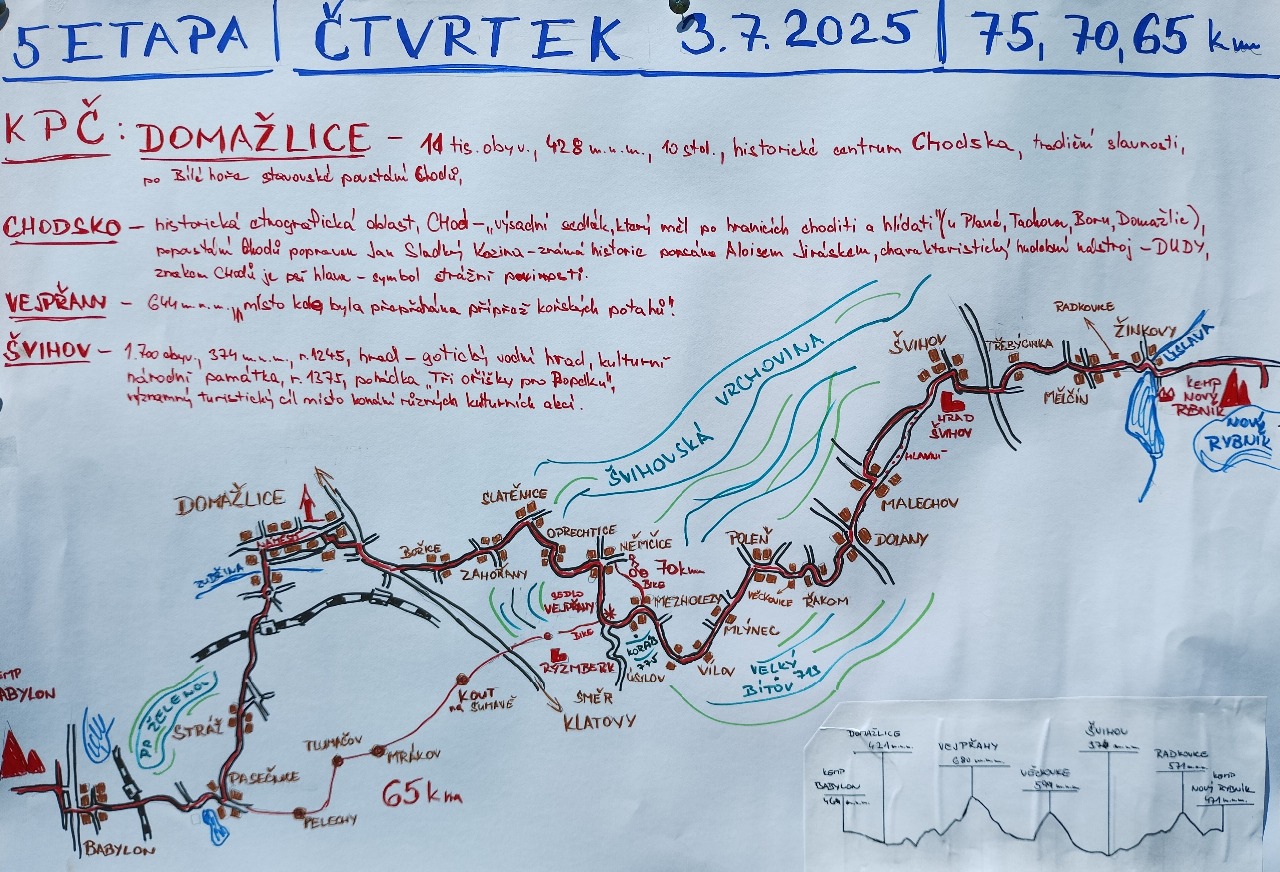 5 ETAPA | ČTVRTEK 3.7.2025 | 75, 70, 65 km
KPČ: DOMAŽLICE – 11 tis. obyv., 428 m.n.m., 10 stol., historické centrum Chodska, tradiční slavnosti,
po Bílé hoře stavovské povstání Chodů,
CHODSKO – historická etnografická oblast, CHod – „výsadní sedlák, který měl po hranicích choditi a hlídati" (u Plané, Tachova, Boru, Domažlic),
popovstání Chodů popraven Jan Sladký Kozina – známá historie popsána Aloisem Jiráskem, charakteristický hudební nástroj – DUDY,
znakem CHodů je psí hlava – symbol strážní povinosti.
VEJPŘAHY – 644 m.n.m. „místo kde byla přepřahána přípřež koňských potahů".
ŠVIHOV – 1.700 obyv., 374 m.n.m., r. 1245, hrad – gotický vodní hrad, kulturní
národní památka, r. 1375, pohádka „Tři oříšky pro Popelku",
významný turistický cíl místo konání různých kulturních akcí.
ŠVIHOVSKÁ VRCHOVINA
RADKOVICE
ŽINKOVY
ÚSLAVA
ŠVIHOV
TŘEBÝCINKA
MĚLČÍN
KEMP
NOVÝ
RYBNÍK
NOVÝ
RYBNÍK
HRAD
ŠVIHOV
HLAVNÍ
MALECHOV
DOLANY
DOMAŽLICE
NÁMĚSTÍ
ZUBŘINA
BOŘICE
ZAHOŘANY
SLATĚNICE
OPRECHTICE
NĚMČICE
70 km
BIKE
SEDLO
VEJPŘAHY
MEZHOLEZY
POLEŇ
VĚCKOVICE
ŘAKOM
MLÝNEC
VÍLOV
ÚŠILOV
KORÁB
775
BIKE
RÝZMBERK
VELKÝ
BÍTOV 713
SMĚR
KLATOVY
KOUT
NA ŠUMAVĚ
MRÁKOV
TLUMAČOV
65 km
PELECHY
PASEČNICE
STRÁŽ
PP ZELENOV
KEMP
BABYLON
BABYLON
DOMAŽLICE
421 m.n.m.
VEJPŘAHY
680 m.n.m.
VĚCKOVICE
ŠVIHOV
RADKOVICE
571 m.n.m.
KEMP
NOVÝ RYBNÍK
471 m.n.m.
KEMP
BABYLON